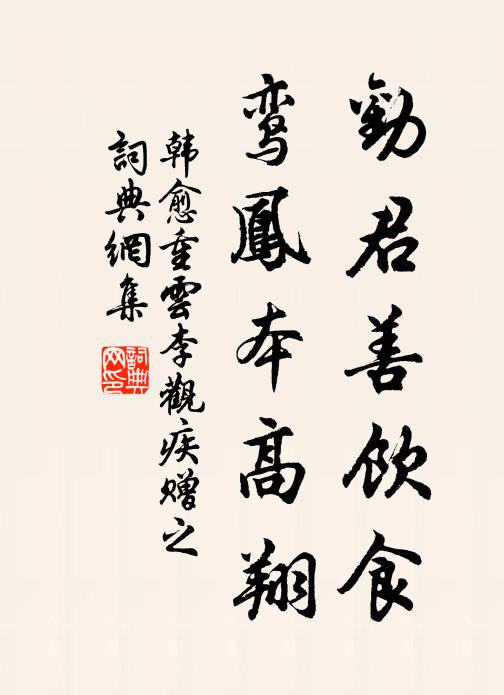 勸君善飲食
鸾鳳本高翔
韩愈重雲李觀疾赠之
詞典網集
詞典网印